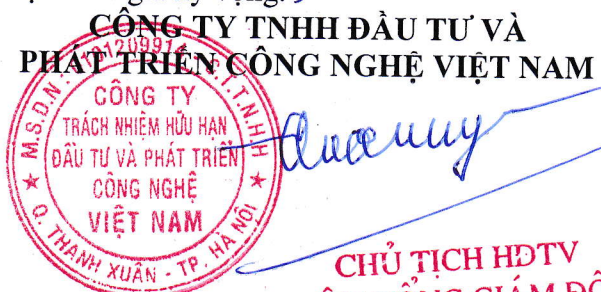 CÔNG TY TNHH ĐẦU TƯ VÀ
PHÁT TRIỂN CÔNG NGHỆ VIỆT NAM
M.S.D.N:
C.T.T.N.H.H
CÔNG TY
TRÁCH NHIỆM HỮU HẠN
ĐẦU TƯ VÀ PHÁT TRIỂN
CÔNG NGHỆ
VIỆT NAM
Q. THANH XUÂN - TP. HÀ NỘI
CHỦ TỊCH HĐTV
GIÁM ĐỐ